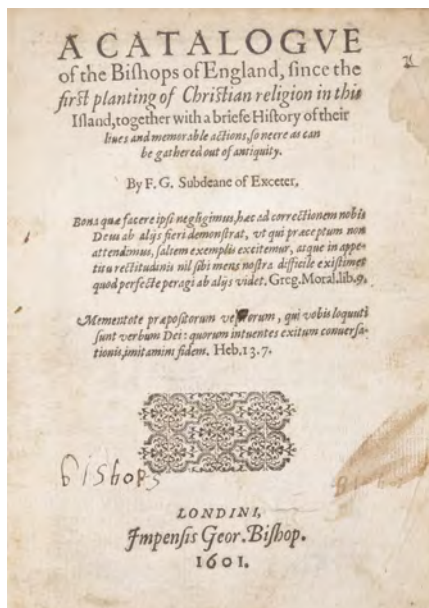 A CATALOGVE
of the Biſhops of England, ſince the
firſt planting of Chriſtian religion in this
Iſland, together with a briefe Hiſtory of their
liues and memorable actions, ſo neere as can
be gathered out of antiquity.
By F. G. Subdeane of Exceter,
Bona quæ facere ipſi negligimus, hæc ad correctionem nobis
Deus ab alijs fieri demonſtrat, vt qui præceptum non
attendimus, ſaltem exemplis excitemur, atque in appe-
titu rectitudinis nil ſibi mens noſtra difficile exiſtimet
quod perfecte peragi ab alijs videt. Greg. Moral. lib. 9.
Mementote præpoſitorum veſtrorum, qui vobis loquuti
ſunt verbum Dei: quorum intuentes exitum conuerſa-
tionis, imitamini fidem. Heb. 13. 7.
Bishops
LONDINI,
Impenſis Geor. Biſhop.
1601.